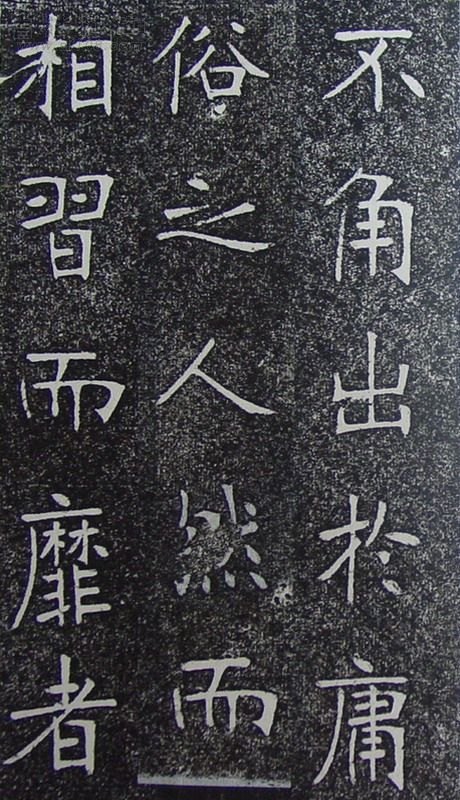 不角出於庸
俗之人然而
相習而靡者